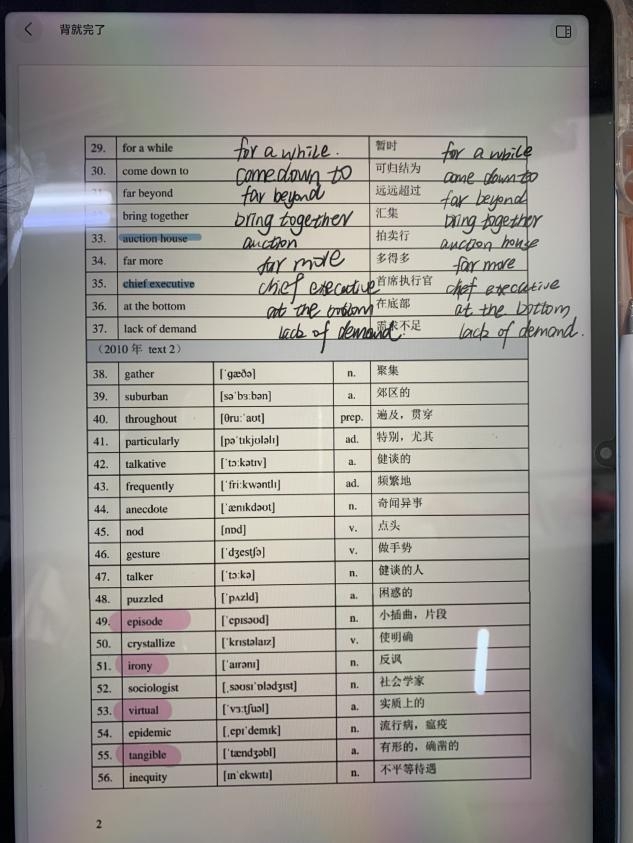 背就完了
29. for a while for a while. 暂时 for a while
30. come down to come down to 可归结为 come down to
far beyond far beyond 远远超过 far beyond
bring together bring together 汇集 bring together
33. auction house auction 拍卖行 auction house
34. far more far more 多得多 far more
35. chief executive chief executive 首席执行官 chef executive
36. at the bottom at the bottom 在底部 at the bottom
37. lack of demand lack of demand. 需求不足 lack of demand.
（2010 年 text 2）
38. gather [ˈɡæðə] n. 聚集
39. suburban [səˈbɜːbən] a. 郊区的
40. throughout [θruːˈaʊt] prep. 遍及，贯穿
41. particularly [pəˈtɪkjʊləlɪ] ad. 特别，尤其
42. talkative [ˈtɔːkətɪv] a. 健谈的
43. frequently [ˈfriːkwəntlɪ] ad. 频繁地
44. anecdote [ˈænɪkdəʊt] n. 奇闻异事
45. nod [nɒd] v. 点头
46. gesture [ˈdʒestʃə] v. 做手势
47. talker [ˈtɔːkə] n. 健谈的人
48. puzzled [ˈpʌzld] a. 困惑的
49. episode [ˈepɪsəʊd] n. 小插曲，片段
50. crystallize [ˈkrɪstəlaɪz] v. 使明确
51. irony [ˈaɪrənɪ] n. 反讽
52. sociologist [ˌsəʊsɪˈɒlədʒɪst] n. 社会学家
53. virtual [ˈvɜːtʃʊəl] a. 实质上的
54. epidemic [ˌepɪˈdemɪk] n. 流行病，瘟疫
55. tangible [ˈtændʒəbl] a. 有形的，确凿的
56. inequity [ɪnˈekwɪtɪ] n. 不平等待遇
2